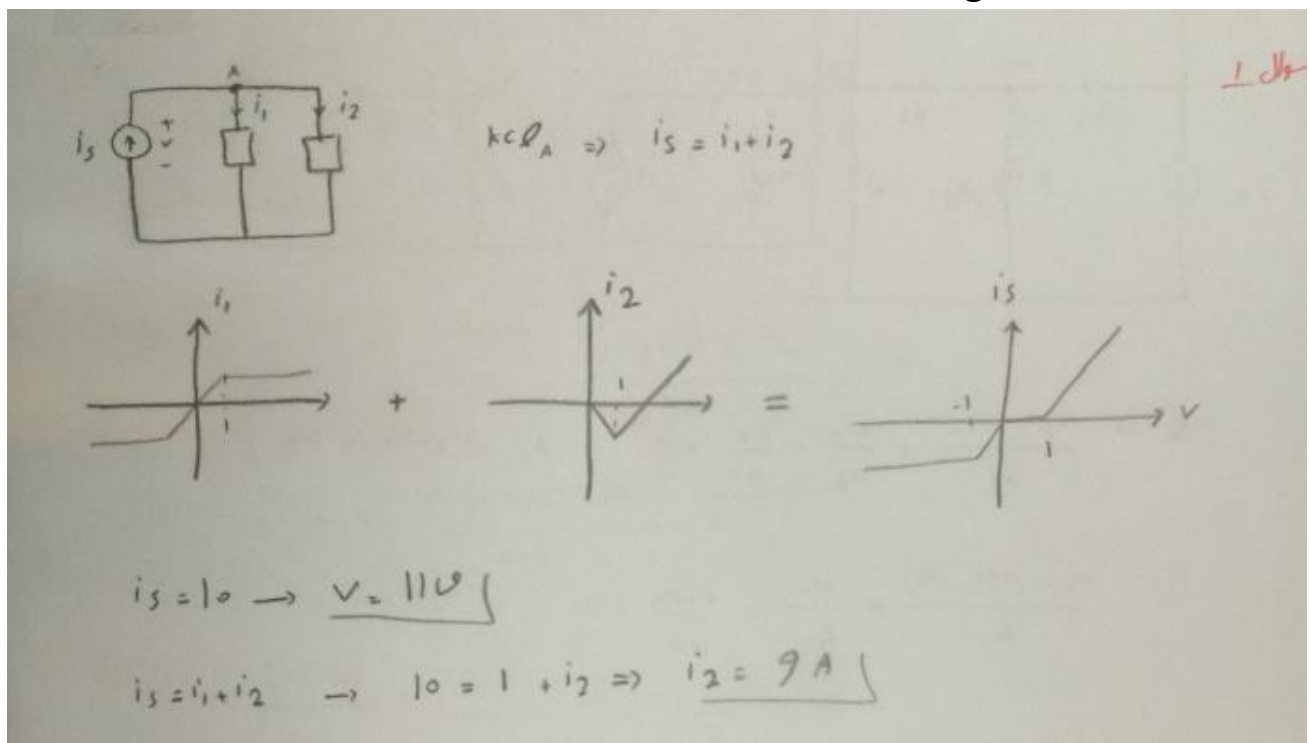 سوال 1
A
i₁ i₂
iₛ + v -
kclA => iₛ = i₁ + i₂
i₁ i₂ iₛ
1 + 1 = -1 1 v
iₛ = 10 → v = 11v
iₛ = i₁ + i₂ → 10 = 1 + i₂ => i₂ = 9 A